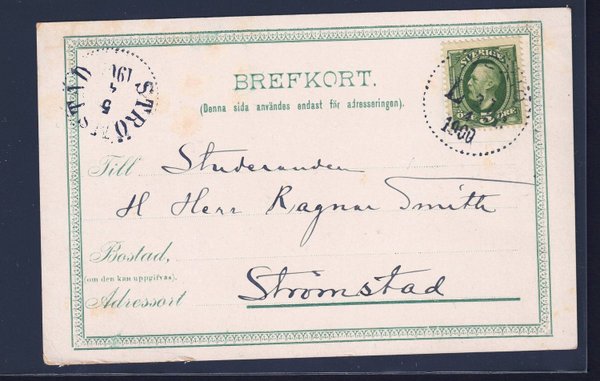 BREFKORT.
(Denna sida användes endast för adresseringen.)
SVERIGE
5 ÖRE
1900
STRÖMSTAD
5
4
Till Studeranden
H Herr Ragnar Smith
Bostad,
(om den kan uppgifvas).
Adressort Strömstad